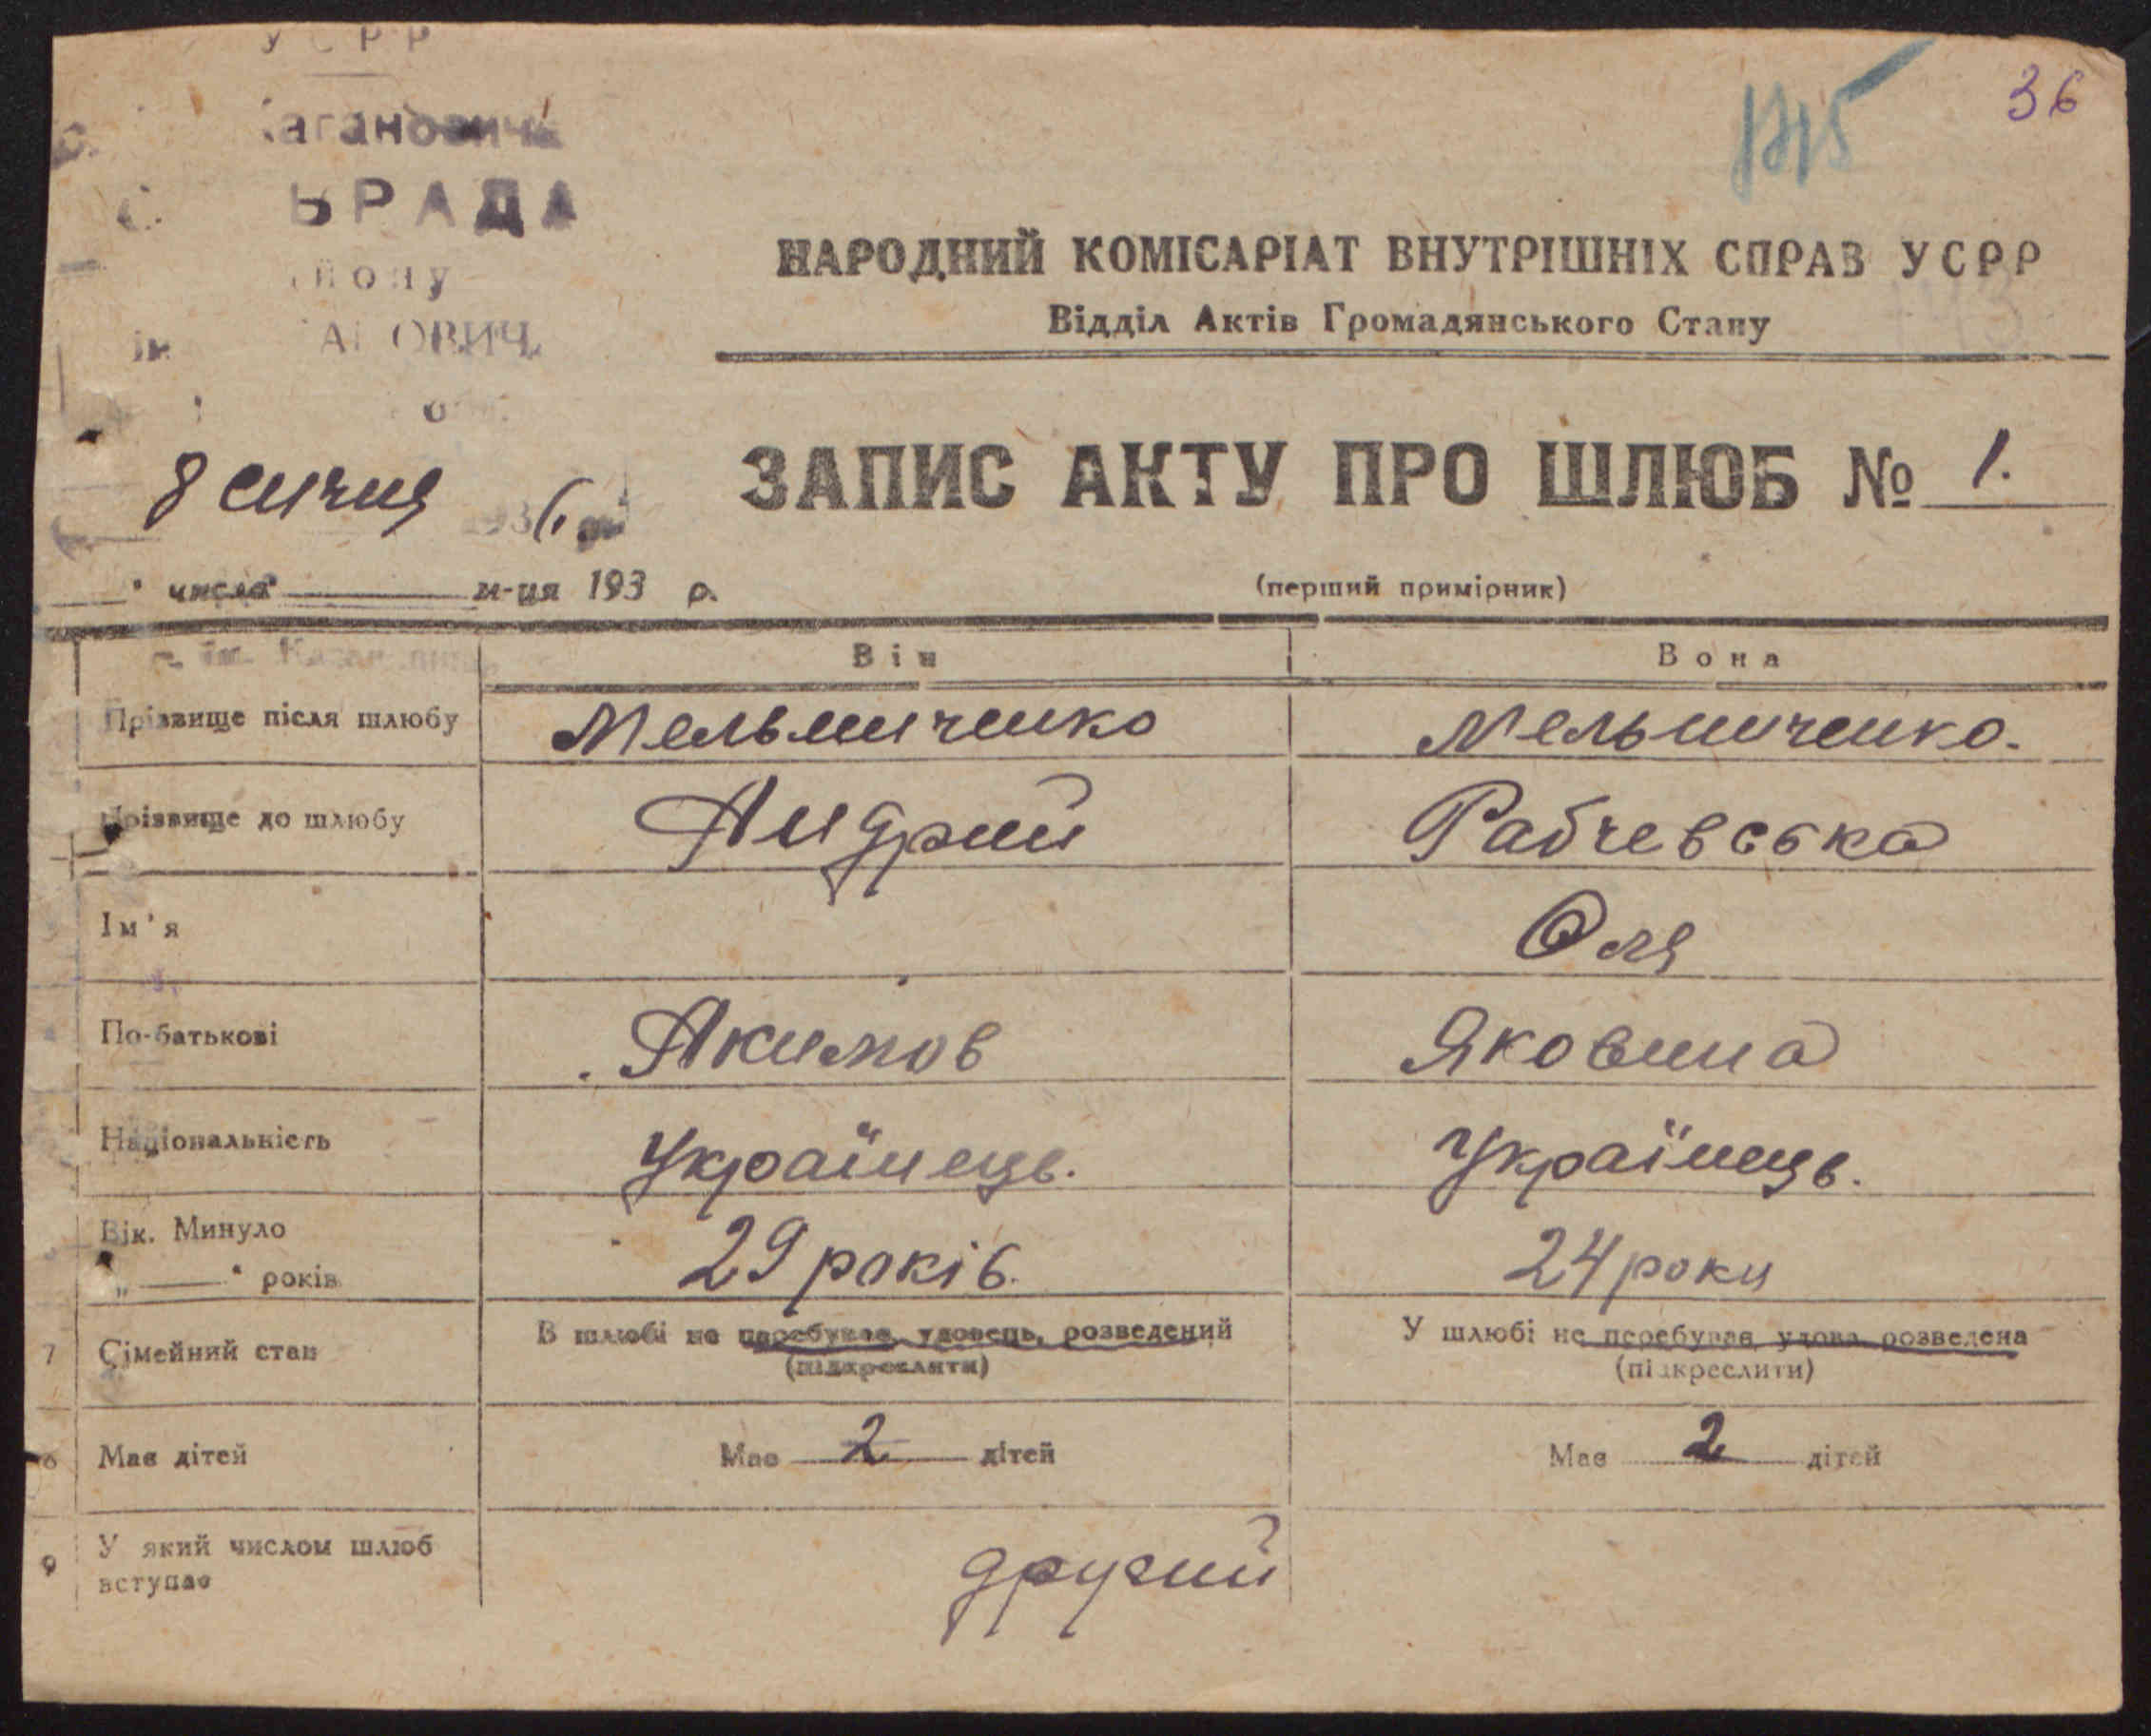 УСРР
36
ЬРАДА
НАРОДНИЙ КОМІСАРІАТ ВНУТРІШНІХ СПРАВ УСРР
Відділ Актів Громадянського Стану
ЗАПИС АКТУ ПРО ШЛЮБ № 1.
8 січня 1936
" числа м-ця 193 р.
(перший примірник)
Він Вона
Прізвище після шлюбу Мельниченко Мельниченко.
Прізвище до шлюбу Андрий Рабчевська
Ім'я Оля
По-батькові Акимов Яковина
Національність Українець. Українець.
Вік. Минуло
„ " років 29 років. 24 роки
7 Сімейний стан В шлюбі не перебував, удовець, розведений У шлюбі не перебував, удова розведена
(підкреслити) (підкреслити)
8 Має дітей Має 2 дітей Має 2 дітей
9 У який числом шлюб
вступає другий